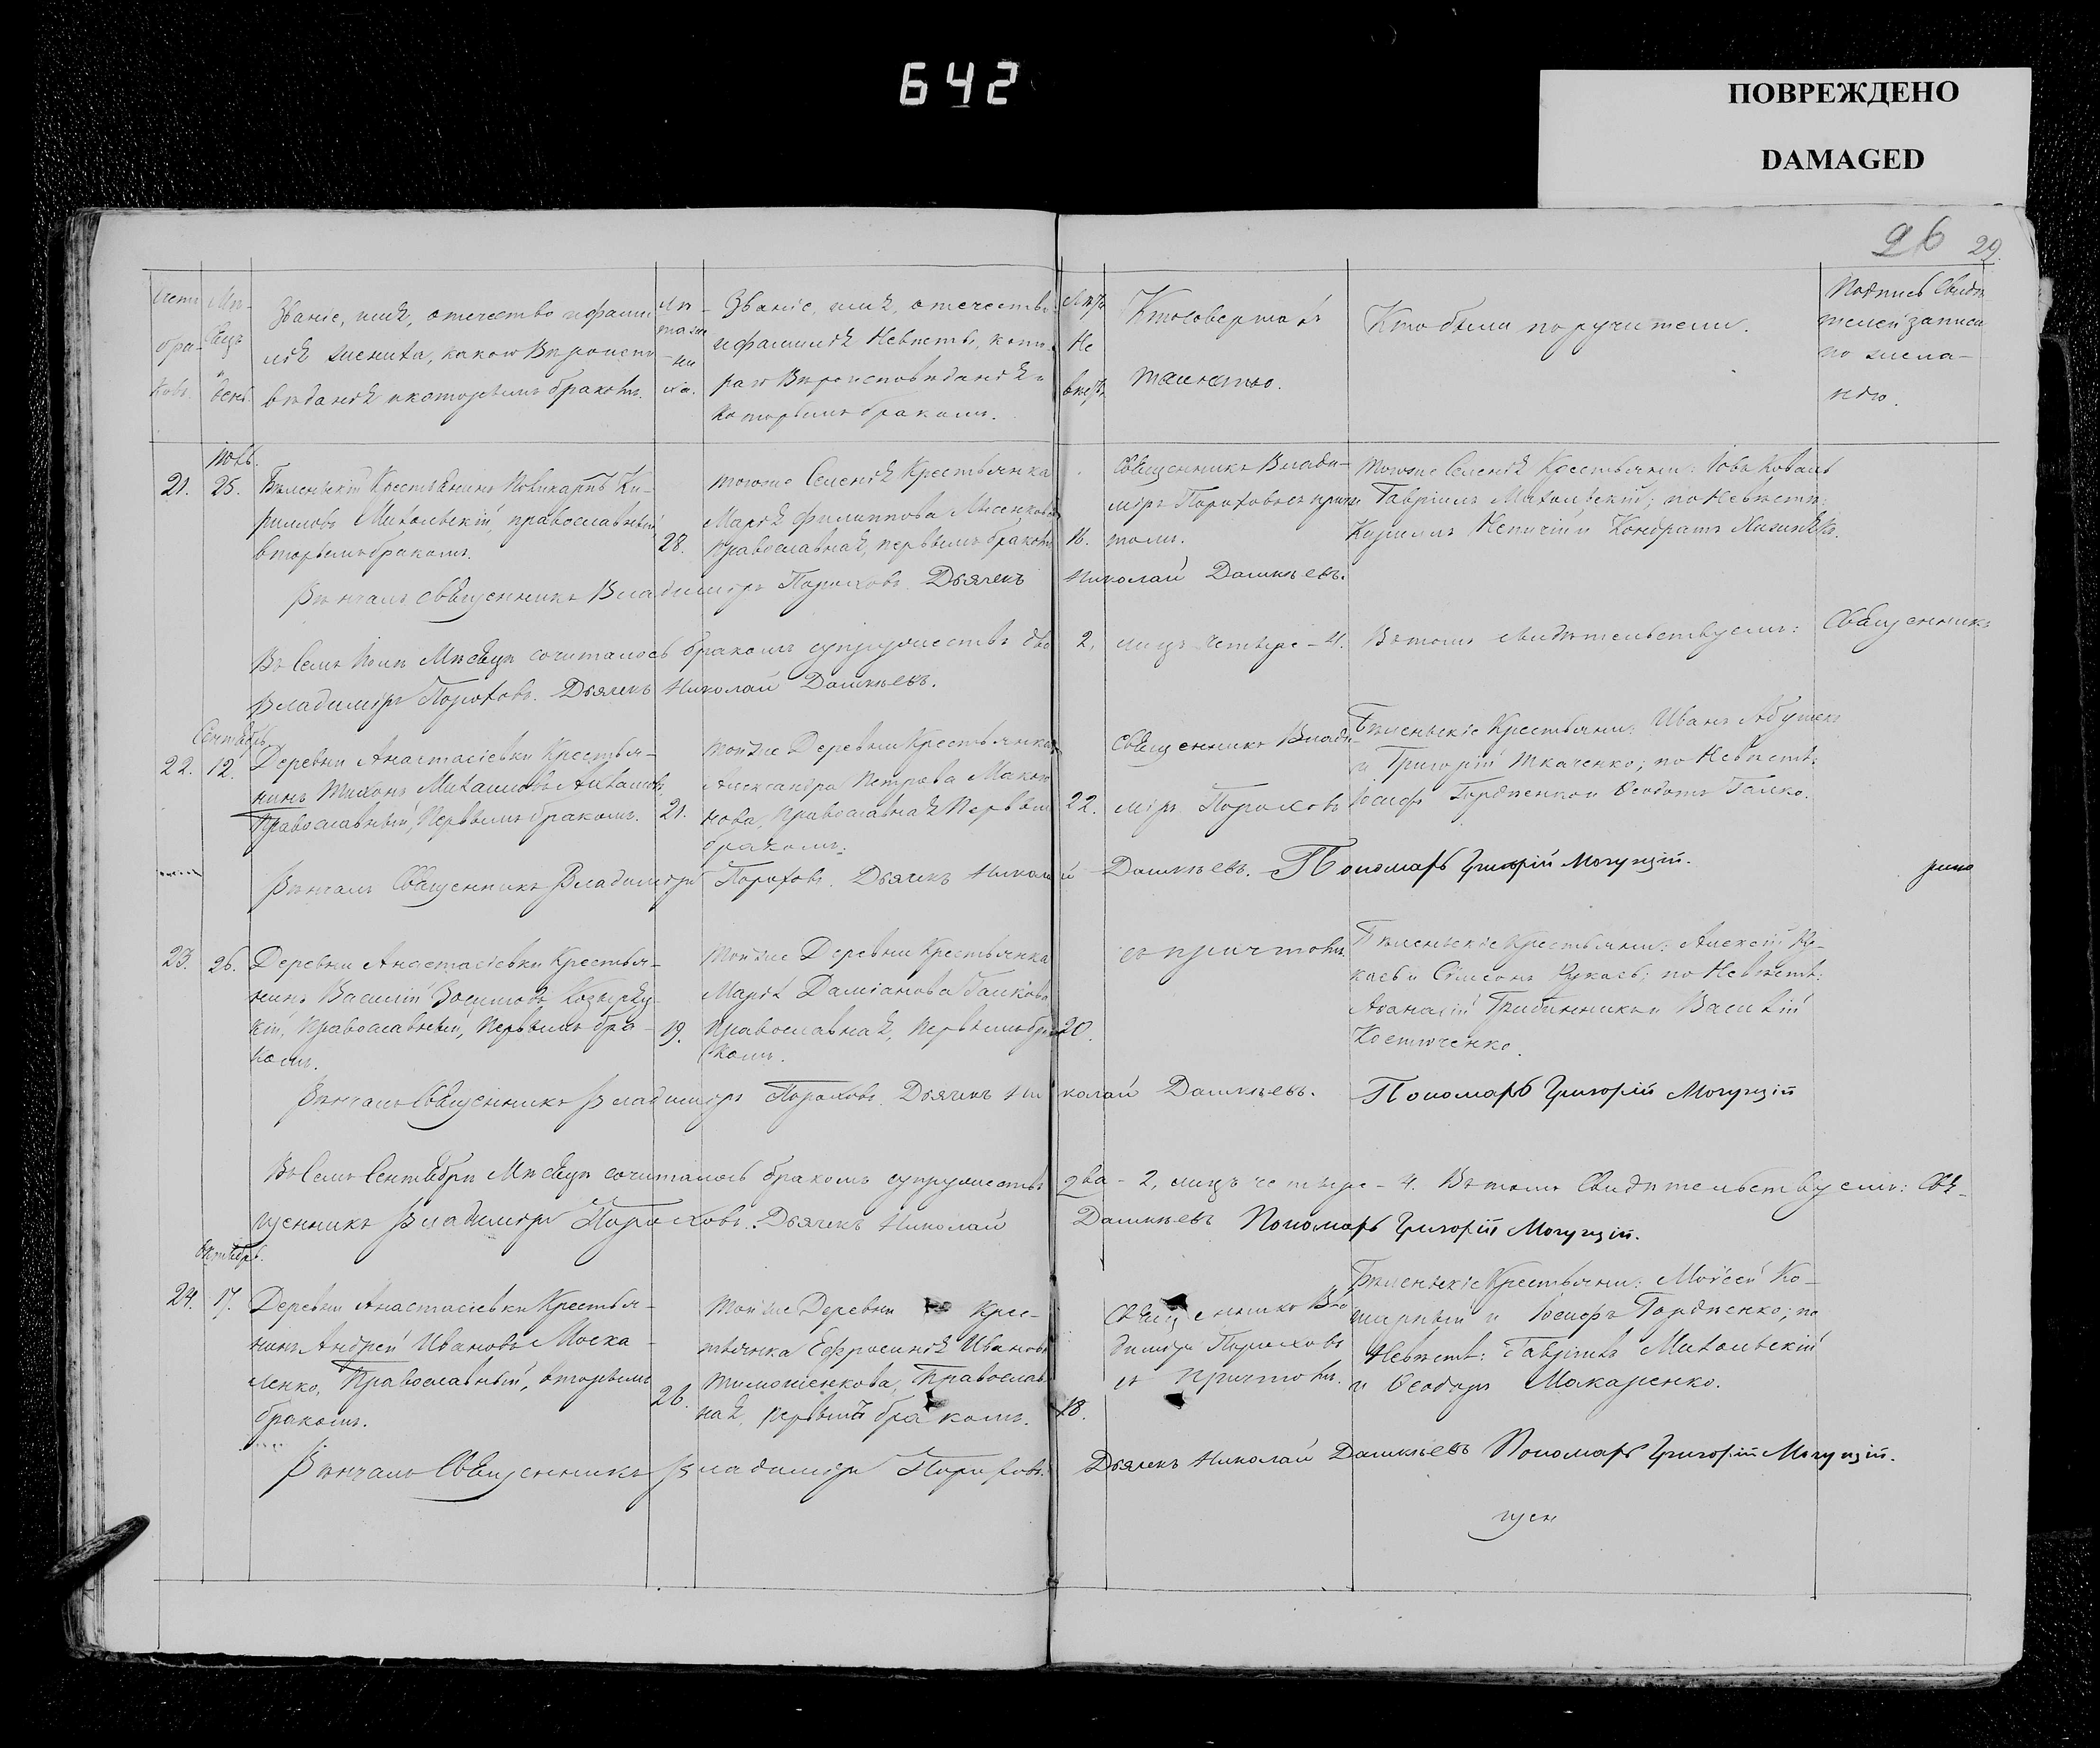 642
ПОВРЕЖДЕНО
DAMAGED
26 29.
Звание, имя, отечество и фами
лия жениха, какого Вероиспо
веданія и которымъ бракомъ.
Звание, имя, отечество
и фамилія Невесты, кото
раго Вероисповеданія и
которымъ бракомъ.
Кто совершалъ
таинство.
Кто были поручители.
Подпись Свиде
телей записи
по жела-
нію.
21. 25. Беленькій Крестьянинъ Поликарпъ Ки-
рилловъ Михальскій, православный,
вторымъ бракомъ.
28.
тогоже Селенія Крестьянка
Марія Филиппова
Православная, первымъ бракомъ
18.
Священникъ Влади-
міръ Пороховъ съ прич
томъ.
тогоже Селенія Крестьяни: Іовъ Коваль
Гавріилъ Михальскій; по Невесте:
Кириллъ и Кондратъ
Венчалъ Священникъ Владиміръ Пороховъ Дьячекъ Николай Дашкѣевъ.
Въ Семъ Мѣсяцѣ сочиталось бракомъ супружествъ два 2, лицъ четыре - 4. Въ томъ свидетельствуемъ: Священникъ
Владиміръ Пороховъ. Дьячекъ Николай Дашкѣевъ.
Сентябрь
22. 12. Деревни Анастасіевки Крестья-
нинъ Тихонъ Михаиловъ
Православный, Первымъ бракомъ.
21.
тойже Деревни Крестьянка
Александра Петрова Макси
нова, Православная Первым
бракомъ.
22.
Священникъ Влади
міръ Пороховъ
Беленькіе Крестьяни: Иванъ
и Григорій Ткаченко; по Невесте:
Іосифъ Гордѣенко и Ѳеодотъ Галко.
Венчалъ Священникъ Владиміръ Пороховъ. Дьячекъ Николай Дашкѣевъ. Пономарь Григорій Могуцій.
23. 26. Деревни Анастасіевки Крестья-
нинъ Василій Зосимовъ
кій, Православный, Первымъ бра-
комъ.
19.
тойже Деревни Крестьянка
Марія Даміанова Галкова
Православная, Первымъ бра
комъ.
20.
съ причтомъ.
Беленькіе Крестьяни: Алексѣй
и Симеонъ; по Невесте:
Аѳанасій Грибинникъ и Василій
Костюченко.
Венчалъ Священникъ Владиміръ Пороховъ Дьячекъ Николай Дашкѣевъ. Пономарь Григорій Могуцій
Въ Семъ Сентябрѣ Мѣсяцѣ сочиталось бракомъ супружествъ два - 2, лицъ четыре - 4. Въ томъ Свидетельствуемъ: Свя-
щенникъ Владиміръ Пороховъ. Дьячекъ Николай Дашкѣевъ Пономарь Григорій Могуцій.
Октябрь.
24. 17. Деревни Анастасіевки Крестья-
нинъ Андрей Ивановъ Моска-
ленко, Православный, вторымъ
бракомъ.
26.
тойже Деревни Крес-
тьянка Ефросинія Иванова
Тимошенкова, Православ
ная, первымъ бракомъ.
18.
Священникъ Вла
диміръ Пороховъ
съ Причтомъ.
Беленькіе Крестьяни: Мойсей Ко-
и Іосифъ Гордѣенко; по
Невесте: Гавріилъ Михальскій
и Ѳеодоръ Макаренко.
Венчалъ Священникъ Владиміръ Пороховъ. Дьячекъ Николай Дашкѣевъ Пономарь Григорій Могуцій.